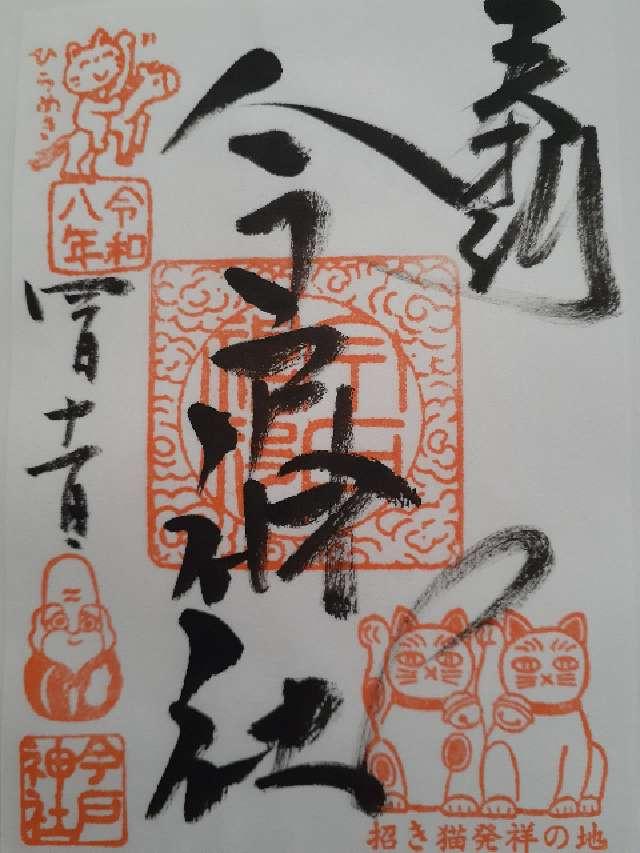 奉拝
今戸神社
ひらめき
令和
八年
四月十一日
今戸
神社
招き猫発祥の地